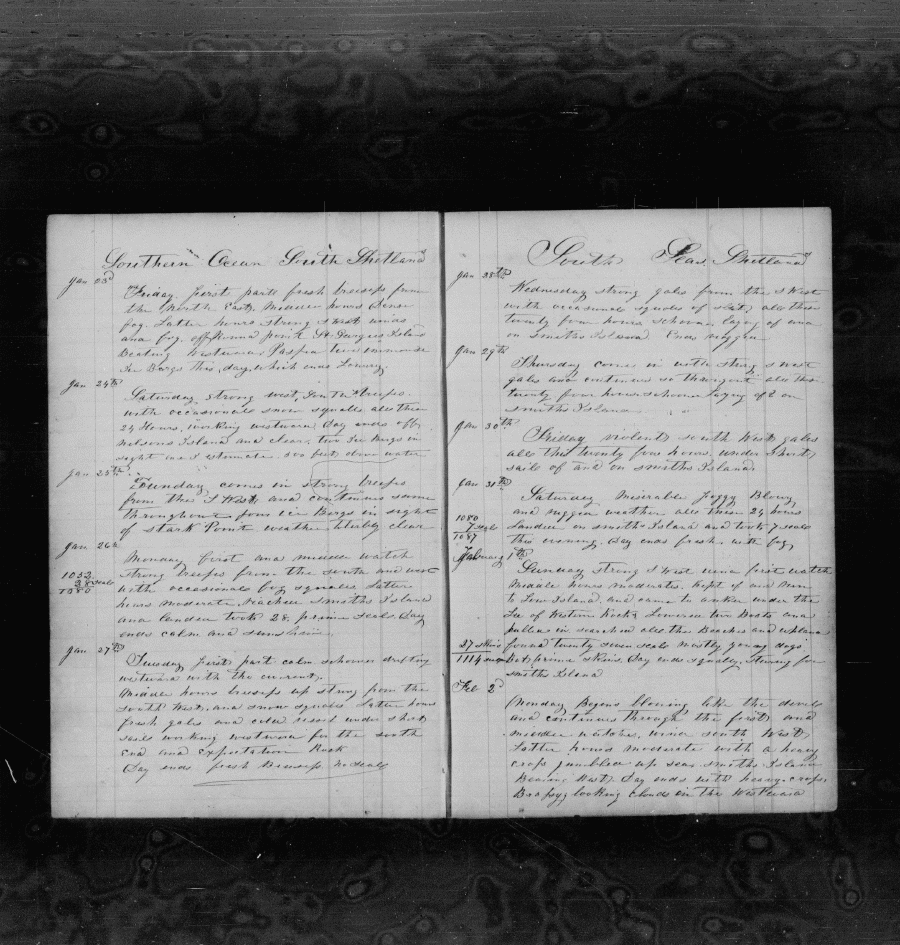 Southern Ocean South Shetland
Jan 23d
Friday first part fresh breeses from
the North East, Middle hours dense
fog. Latter hours strong S West winds
and fog. off round point St Georges Island
Beating Westward Passed two
Ice Bergs this day, which was
Jan 24th
Saturday strong west, breeses
with occasional snow squalls all these
24 Hours, working westward Day ends off
Nelsons Island and clear, two Ice Bergs in
sight one I estimate 300 feet above water
Jan 25th
Sunday comes in strong breeses
from the S West, and continues same
throughout four Ice Bergs in sight
of stark Point weather clear
Jan 26th
Monday first and middle watch
strong breeses from the south and west
1052
28 seals
1080
with occasional fog squalls Latter
hours moderate, reached Smiths Island
and landed took 28, prime seals Day
ends calm and sunshine
Jan 27th
Tuesday first part calm schooner drifting
westward with the current,
Middle hours breeses up strong from the
South West, and snow squalls, Latter hours
fresh gales and cold vessel under short
sail working westward for the south
End and Expectation Rock
Day ends fresh Breeses, no seals
South Seas. Shetland
Jan 28th
Wednesday strong gales from the S West
with occasional squales of all these
twenty four hours schooner laying off and
on Smiths Island Ends ruggid
Jan 29th
Thursday comes in with strong S west
gales and continues so througout all this
twenty four hours schooner laying off & on
smiths Islands
Jan 30th
Friday violent south West gales
all this twenty four hours, under Short
sails off and on smiths Island
Jan 31st
Saturday Miserable foggy Blowy
and ruggid weather all these 24 hours
1080
7 seals
1087
Landed on smiths Island and took 7 seals
this evening. Day ends fresh with fog,
February 1th
Sunday strong S West wind first watch
Middle hours moderate. kept off and run
to Low Island, and came to anker under the
Lee of Western Rock, Lowered two Boats and
pulled in searched all the Beaches and
27 skins
1114
found twenty seven seals mostly young dogs
but prime skins, Day ends squaly, steering for
smiths Island
Feb 2d
Monday Begins blowing like the devil
and continues through the first and
middle watches, wind south West,
Latter hours moderate with a heavy
cross jumbled up sea, smiths Island
Bearing West. Day ends with heavy cross
looking clouds in the Westward